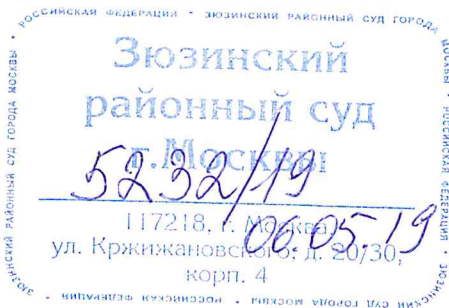 РОССИЙСКАЯ ФЕДЕРАЦИЯ • ЗЮЗИНСКИЙ РАЙОННЫЙ СУД ГОРОДА МОСКВЫ • РОССИЙСКАЯ ФЕДЕРАЦИЯ • ЗЮЗИНСКИЙ РАЙОННЫЙ СУД ГОРОДА МОСКВЫ • РОССИЙСКАЯ ФЕДЕРАЦИЯ • ЗЮЗИНСКИЙ РАЙОННЫЙ СУД ГОРОДА МОСКВЫ •
Зюзинский
районный суд
г.Москвы
5232/19
117218, г. Москва,
06.05.19
ул. Кржижановского, д. 20/30,
корп. 4